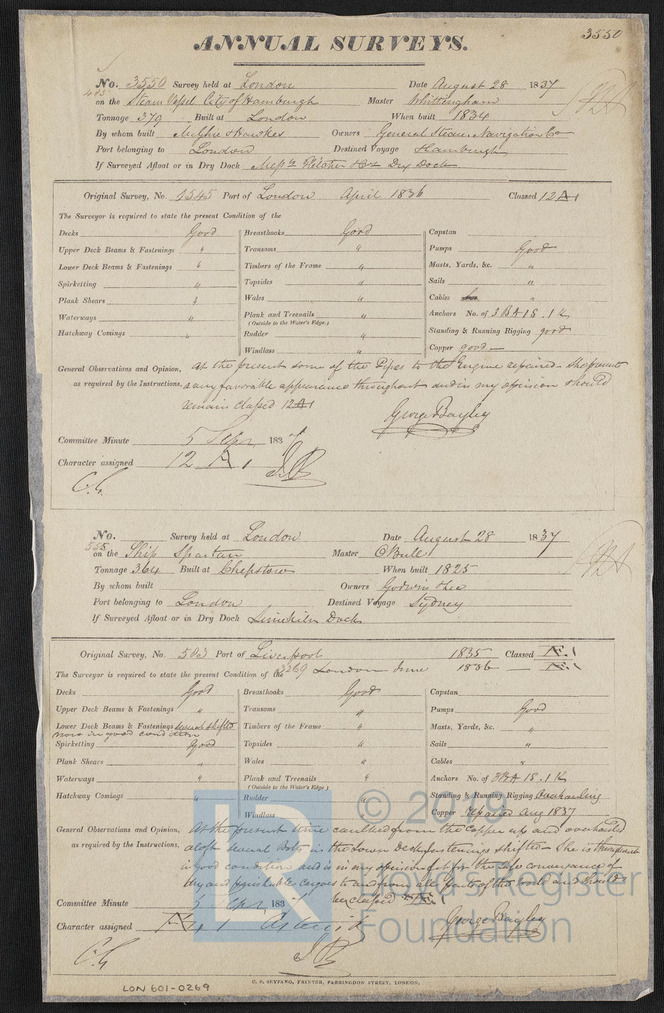 3550
ANNUAL SURVEYS.
No. 3550 Survey held at London Date August 28 1837
on the Steam Vessel City of Hamburgh Master Whittingham
Tonnage 379 Built at London When built 1834
By whom built Owners General Steam Navigation Co
Port belonging to London Destined Voyage Hamburgh
If Surveyed Afloat or in Dry Dock Messrs Fletcher & Co Dry Dock
Original Survey, No. 2545 Port of London April 1836 Classed 12 A 1
The Surveyor is required to state the present Condition of the
Decks Good Breasthooks Good Capstan
Upper Deck Beams & Fastenings " Transoms " Pumps Good
Lower Deck Beams & Fastenings " Timbers of the Frame " Masts, Yards, &c. "
Spirketting " Topsides " Sails "
Plank Shears " Wales " Cables "
Waterways " Plank and Treenails " Anchors No. of 3 BA 1S. 1K
(Outside to the Water's Edge.)
Hatchway Comings " Rudder " Standing & Running Rigging good
Windlass " Copper good
General Observations and Opinion, At the present some of the Pipes to the Engine repaired. She presents
as required by the Instructions, a very favorable appearance throughout and in my opinion should
remain classed 12 A 1
George Bayley
Committee Minute 5 Sepr 1837
Character assigned 12 A 1
C.G.
No. 555 Survey held at London Date August 28 1837
on the Ship Spartan Master
Tonnage 364 Built at Chepstow When built 1825
By whom built Owners Godwin & Lee
Port belonging to London Destined Voyage Sydney
If Surveyed Afloat or in Dry Dock Limekiln Dock
Original Survey, No. Port of Liverpool 1835 Classed Æ 1
The Surveyor is required to state the present Condition of the 3269 London June 1836 Æ 1
Decks Good Breasthooks Good Capstan
Upper Deck Beams & Fastenings " Transoms " Pumps Good
Lower Deck Beams & Fastenings several shifted Timbers of the Frame " Masts, Yards, &c. "
now in good condition
Spirketting Good Topsides " Sails "
Plank Shears " Wales " Cables "
Waterways " Plank and Treenails " Anchors No. of 3 BA 1S. 1K
(Outside to the Water's Edge.)
Hatchway Comings " Rudder Standing & Running Rigging Overhauling
Windlass Copper repaired Aug 1837
General Observations and Opinion, At the present time caulked from the Copper up and overhauled
as required by the Instructions, aloft several bolts in the Lower Deck fastenings shifted. She is
in good condition and is in my opinion fit for the safe conveyance of
dry and perishable cargoes to and from all parts of the world and should
be classed Æ 1
Committee Minute 5 Sepr 1837
George Bayley
Character assigned Æ 1
C.G.
© 2019
LR
Lloyd's Register
Foundation
LON 601-0269
C. F. SEYFANG, PRINTER, FARRINGDON STREET, LONDON.